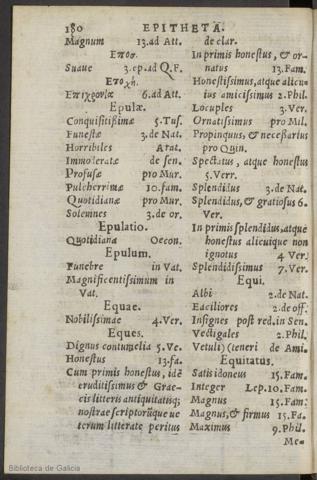 180 EPITHETA.
Magnum 13.ad Att.
Εποσ.
Suaue 3.ep.ad Q.F.
Εποχή.
6.ad Att.
Epulæ.
Conquisitißimæ 5.Tus.
Funestæ 3.de Nat.
Horribiles Arat.
Immoderatæ de sen.
Profusæ pro Mur.
Pulcherrimæ 10.fam.
Quotidianæ pro Mur.
Solemnes 3.de or.
Epulatio.
Quotidiana Oecon.
Epulum.
Funebre in Vat.
Magnificentissimum in
Vat.
Equae.
Nobilissimae 4.Ver.
Eques.
Dignus contumelia 5.Ve.
Honestus 13.fa.
Cum primis honestus, idẽ
eruditissimus & Græ-
cis litteris antiquitatisq;
nostrae scriptorũque ue
terum litterate peritus
de clar.
In primis honestus, & or-
natus 13.Fam.
Honestissimus, atque alicu-
ius amicissimus 2.Phil.
Locuples 3.Ver.
Ornatissimus pro Mil.
Propinquus, & neceßarius
pro Quin.
Spectatus, atque honestus
5.Verr.
Splendidus 3.de Nat.
Splendidus, & gratiosus 6.
Ver.
In primis splendidus, atque
honestus alicuique non
ignotus 4 Ver.
Splendidissimus 7.Ver.
Equi.
Albi 2.de Nat.
Faciliores 2.de off.
Insignes post red.in Sen.
Vectigales 2.Phil.
Vetuli) (teneri de Ami.
Equitatus.
Satis idoneus 15.Fam.
Integer Lep.10.Fam.
Magnus 15.Fam.
Magnus, & firmus 15.Fa.
Maximus 9.Phil.
Me-
Biblioteca de Galicia